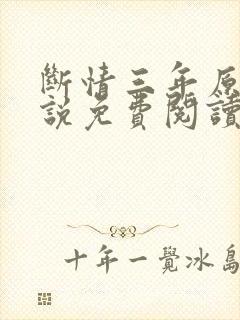 斷情三年原
說免費閱讀
十年一覺冰島